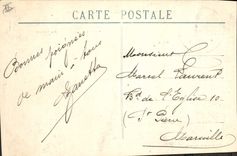 CARTE POSTALE
Bonnes poignées
de main à tous
Monsieur
Marcel Laurent
Bd de l'Eglise 10
(St Pierre)
Marseille